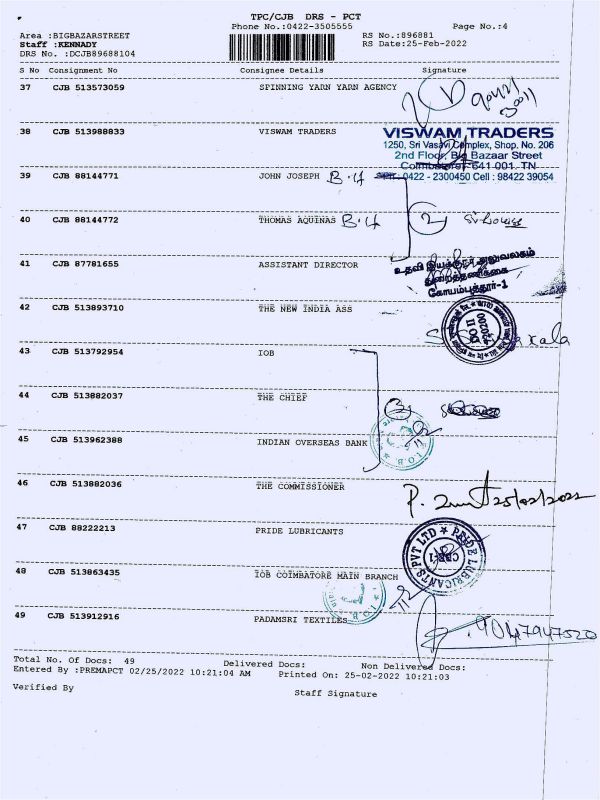 TPC/CJB DRS - PCT
Phone No.:0422-3505555
Page No.:4
Area :BIGBAZARSTREET
RS No.:896881
Staff :KENNADY
RS Date:25-Feb-2022
DRS No. :DCJB89688104
S No Consignment No Consignee Details Signature
37 CJB 513573059 SPINNING YARN YARN AGENCY
38 CJB 513988833 VISWAM TRADERS
VISWAM TRADERS
1250, Sri Vasavi Complex, Shop. No. 206
2nd Floor, Big Bazaar Street
Coimbatore - 641 001. TN
0422 - 2300450 Cell : 98422 39054
39 CJB 88144771 JOHN JOSEPH B.H
40 CJB 88144772 THOMAS AQUINAS B.H 2
41 CJB 87781655 ASSISTANT DIRECTOR
உதவி இயக்குநர் அலுவலகம்
கோயம்புத்தூர்-1
42 CJB 513893710 THE NEW INDIA ASS
43 CJB 513792954 IOB
44 CJB 513882037 THE CHIEF
45 CJB 513962388 INDIAN OVERSEAS BANK
I.O.B
46 CJB 513882036 THE COMMISSIONER
25/02/2022
47 CJB 88222213 PRIDE LUBRICANTS
PRIDE LUBRICANTS PVT LTD
CBE-1
48 CJB 513863435 IOB COIMBATORE MAIN BRANCH
I.O.B
49 CJB 513912916 PADAMSRI TEXTILES
Total No. Of Docs: 49 Delivered Docs: Non Delivered Docs:
Entered By :PREMAPCT 02/25/2022 10:21:04 AM Printed On: 25-02-2022 10:21:03
Verified By
Staff Signature